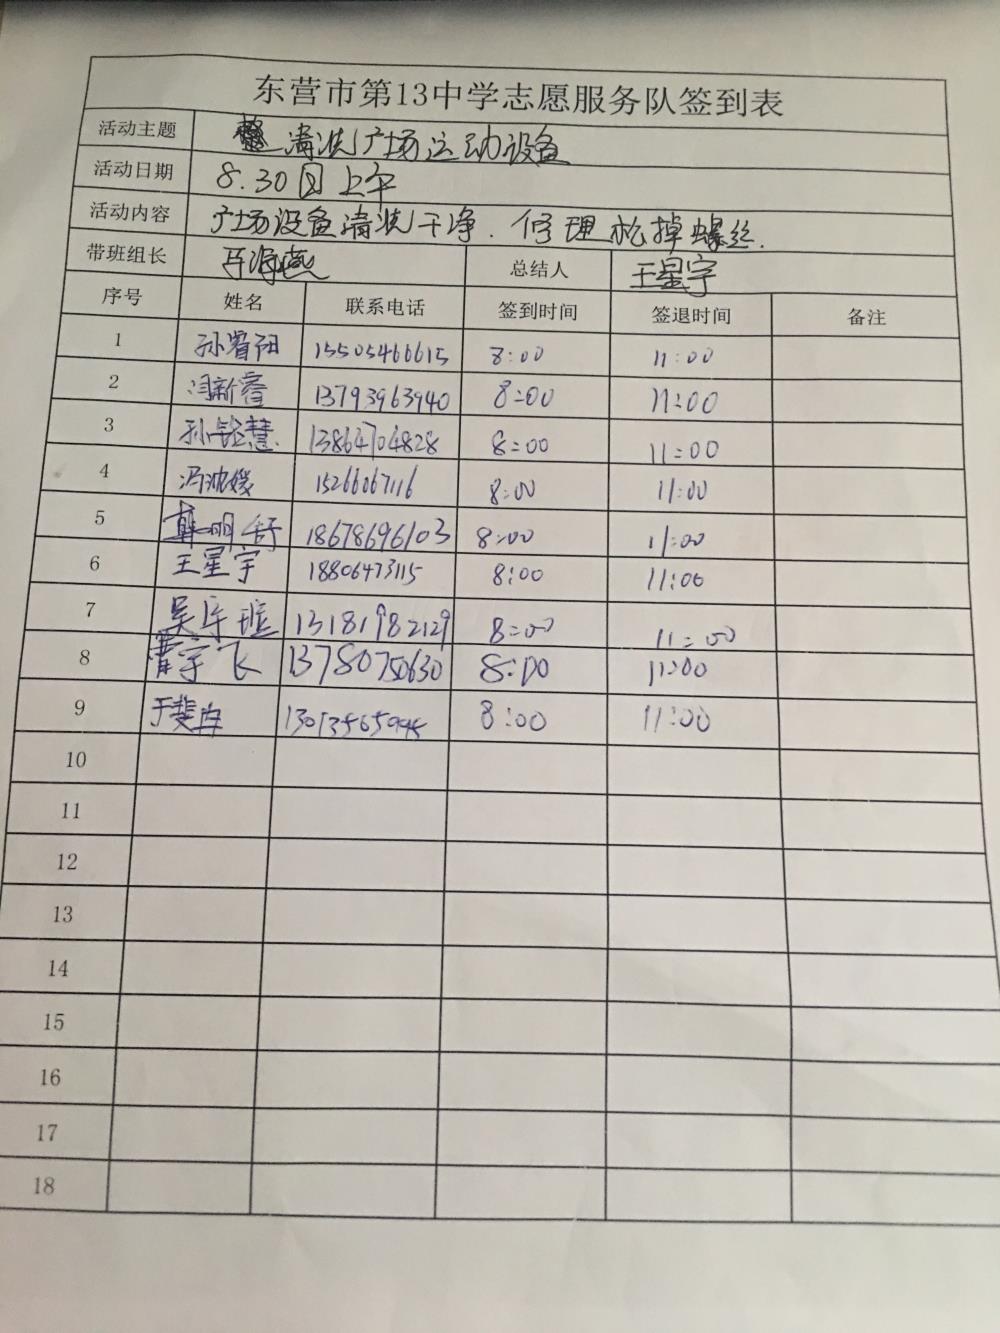 东营市第13中学志愿服务队签到表
活动主题 清洗广场运动设备
活动日期 8.30日上午
活动内容 广场设备清洗干净.修理松掉螺丝.
带班组长 海燕 总结人 王星宇
序号 姓名 联系电话 签到时间 签退时间 备注
1 孙睿阳 15505466615 8:00 11:00
2 闫新睿 13793963940 8:00 11:00
3 孙铭慧 13864704828 8:00 11:00
4 冯沈媛 15266067116 8:00 11:00
5 韩明舒 18678696103 8:00 11:00
6 王星宇 18806473115 8:00 11:00
7 吴 13181982129 8:00 11:00
8 曹宇飞 13780750630 8:00 11:00
9 于斐 8:00 11:00
10
11
12
13
14
15
16
17
18